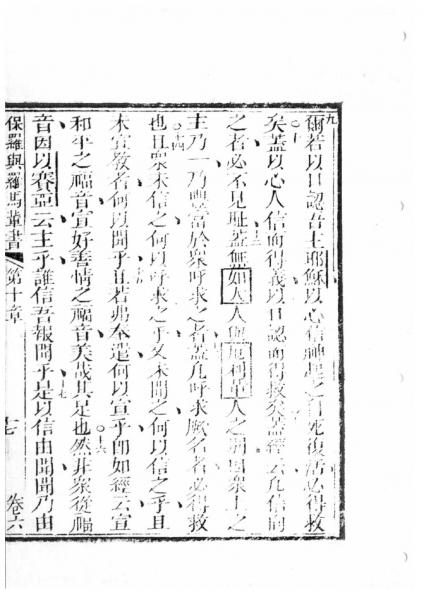 九
爾若以口認吾主耶穌以心信神起之自死復活必得救
矣蓋以心人信而得義以口認而得救矣蓋經云凡信向
之者必不見耻蓋無如大人與厄利革人之別因眾上之
主乃一乃豐富於眾呼求之者蓋凡呼求厥名者必得救
也且眾未信之何以呼求之乎又未聞之何以信之乎且
未宣教者何以聞乎且若弗奉遣何以宣乎即如經云宣
和平之福音宣好善情之福音美哉其足也然非眾從福
音因以賽亞云主乎誰信吾報聞乎是以信由聞聞乃由
保羅與羅馬輩書 第十章 卷六